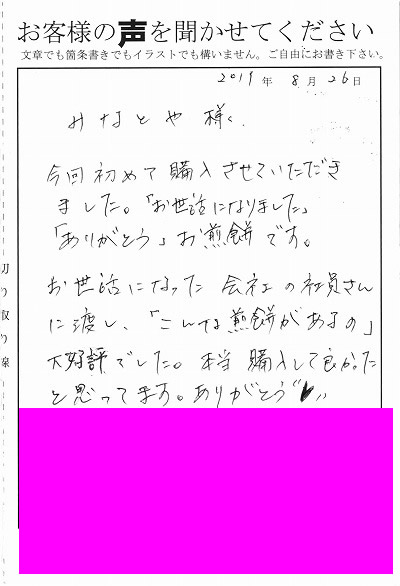 お客様の声を聞かせてください
文章でも箇条書きでもイラストでも構いません。ご自由にお書き下さい。
2019年8月26日
みなとや 様
今回初めて購入させていただき
ました。「お世話になりました」
「ありがとう」お煎餅です。
お世話になった会社の社員さん
に渡し、「こんな煎餅があるの」
大好評でした。本当 購入して良かった
と思ってます。ありがとう
切り取り線